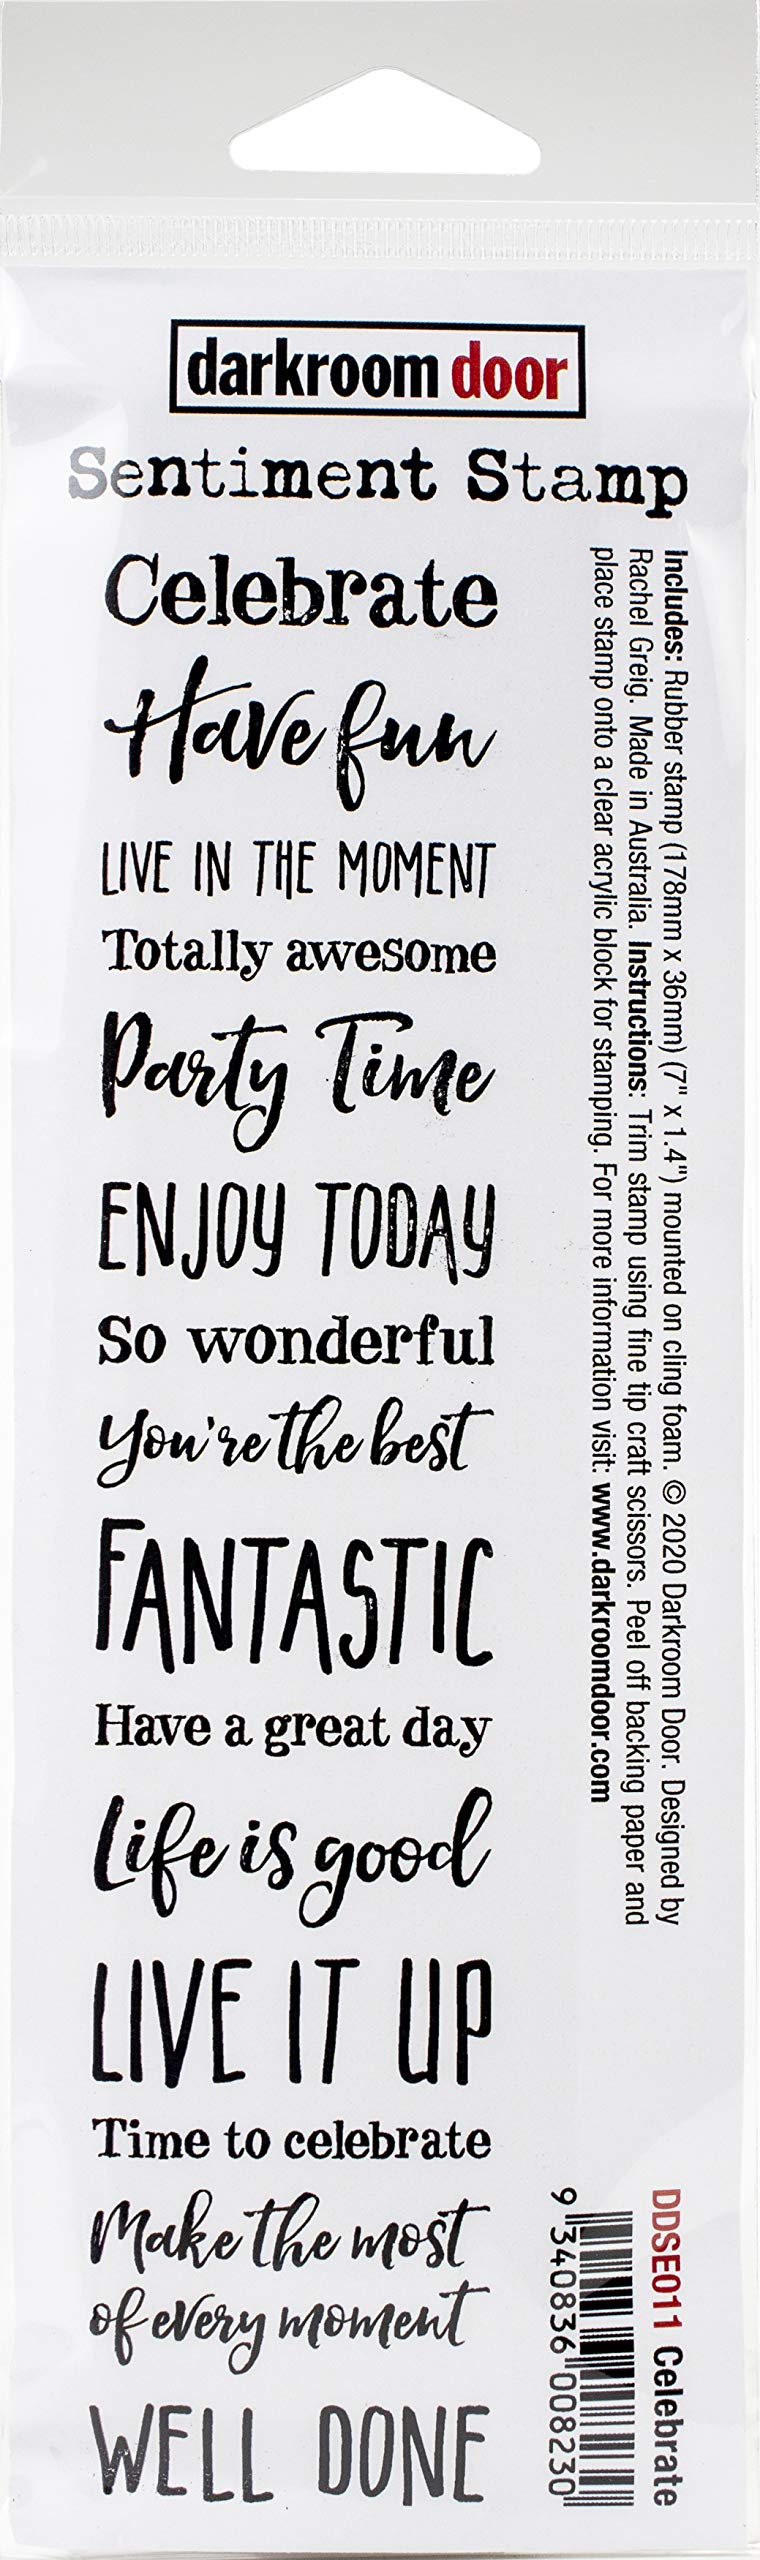 darkroom door
Sentiment Stamp
Celebrate
Have fun
LIVE IN THE MOMENT
Totally awesome
Party Time
ENJOY TODAY
So wonderful
You're the best
FANTASTIC
Have a great day
Life is good
LIVE IT UP
Time to celebrate
Make the most
of every moment
WELL DONE
Includes: Rubber stamp (178mm x 36mm) (7" x 1.4") mounted on cling foam. © 2020 Darkroom Door. Designed by
Rachel Greig. Made in Australia. Instructions: Trim stamp using fine tip craft scissors. Peel off backing paper and
place stamp onto a clear acrylic block for stamping. For more information visit: www.darkroomdoor.com
DDSE011 Celebrate
9 340836 008230